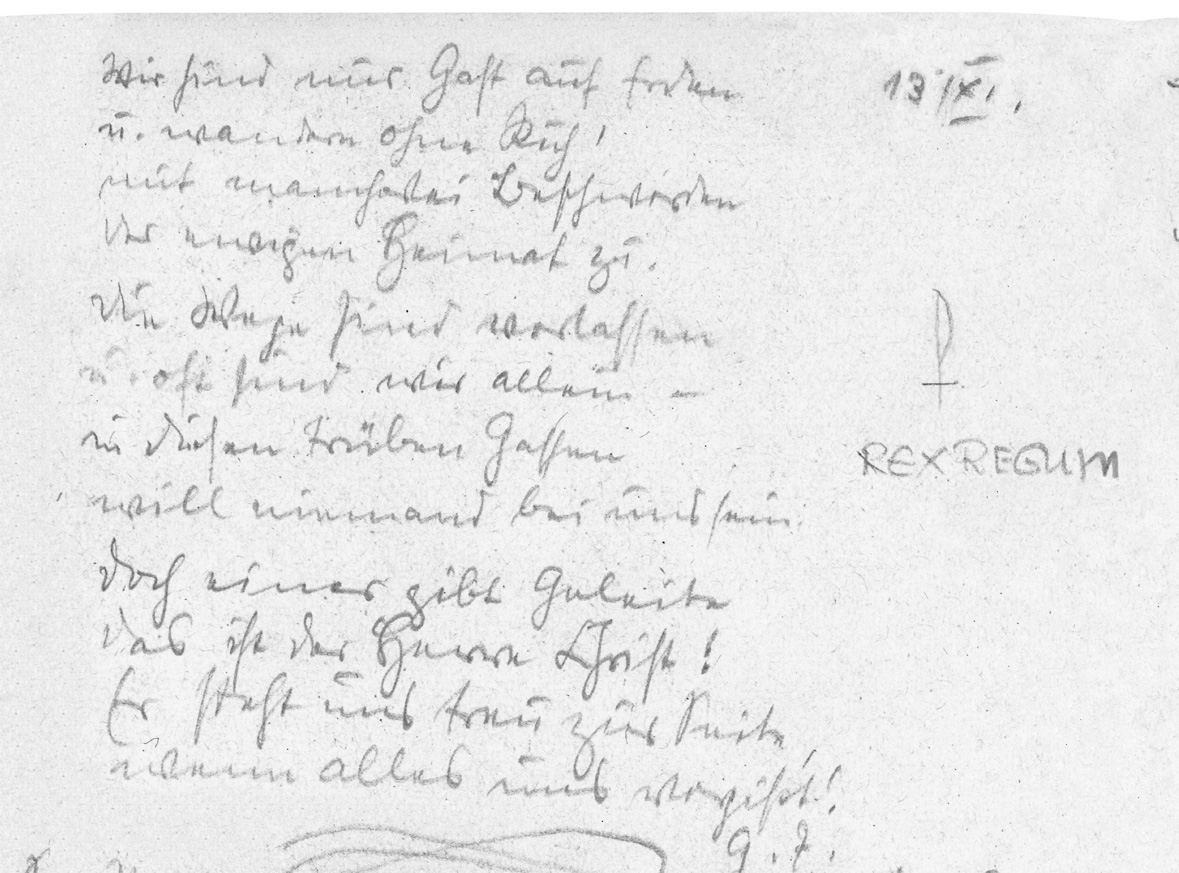 Wir sind nur Gast auf Erden
13/XI.
u. wandern ohne Ruh!
mit mancherlei Beschwerden
der ewigen Heimat zu.
die Wege sind verlassen
u. oft sind wir allein –
in diesen trüben Gassen
REX REGUM
will niemand bei uns sein.
doch einer gibt Geleite
das ist der Herre Christ!
Er steht uns treu zur Seite,
wenn alles uns vergißt!